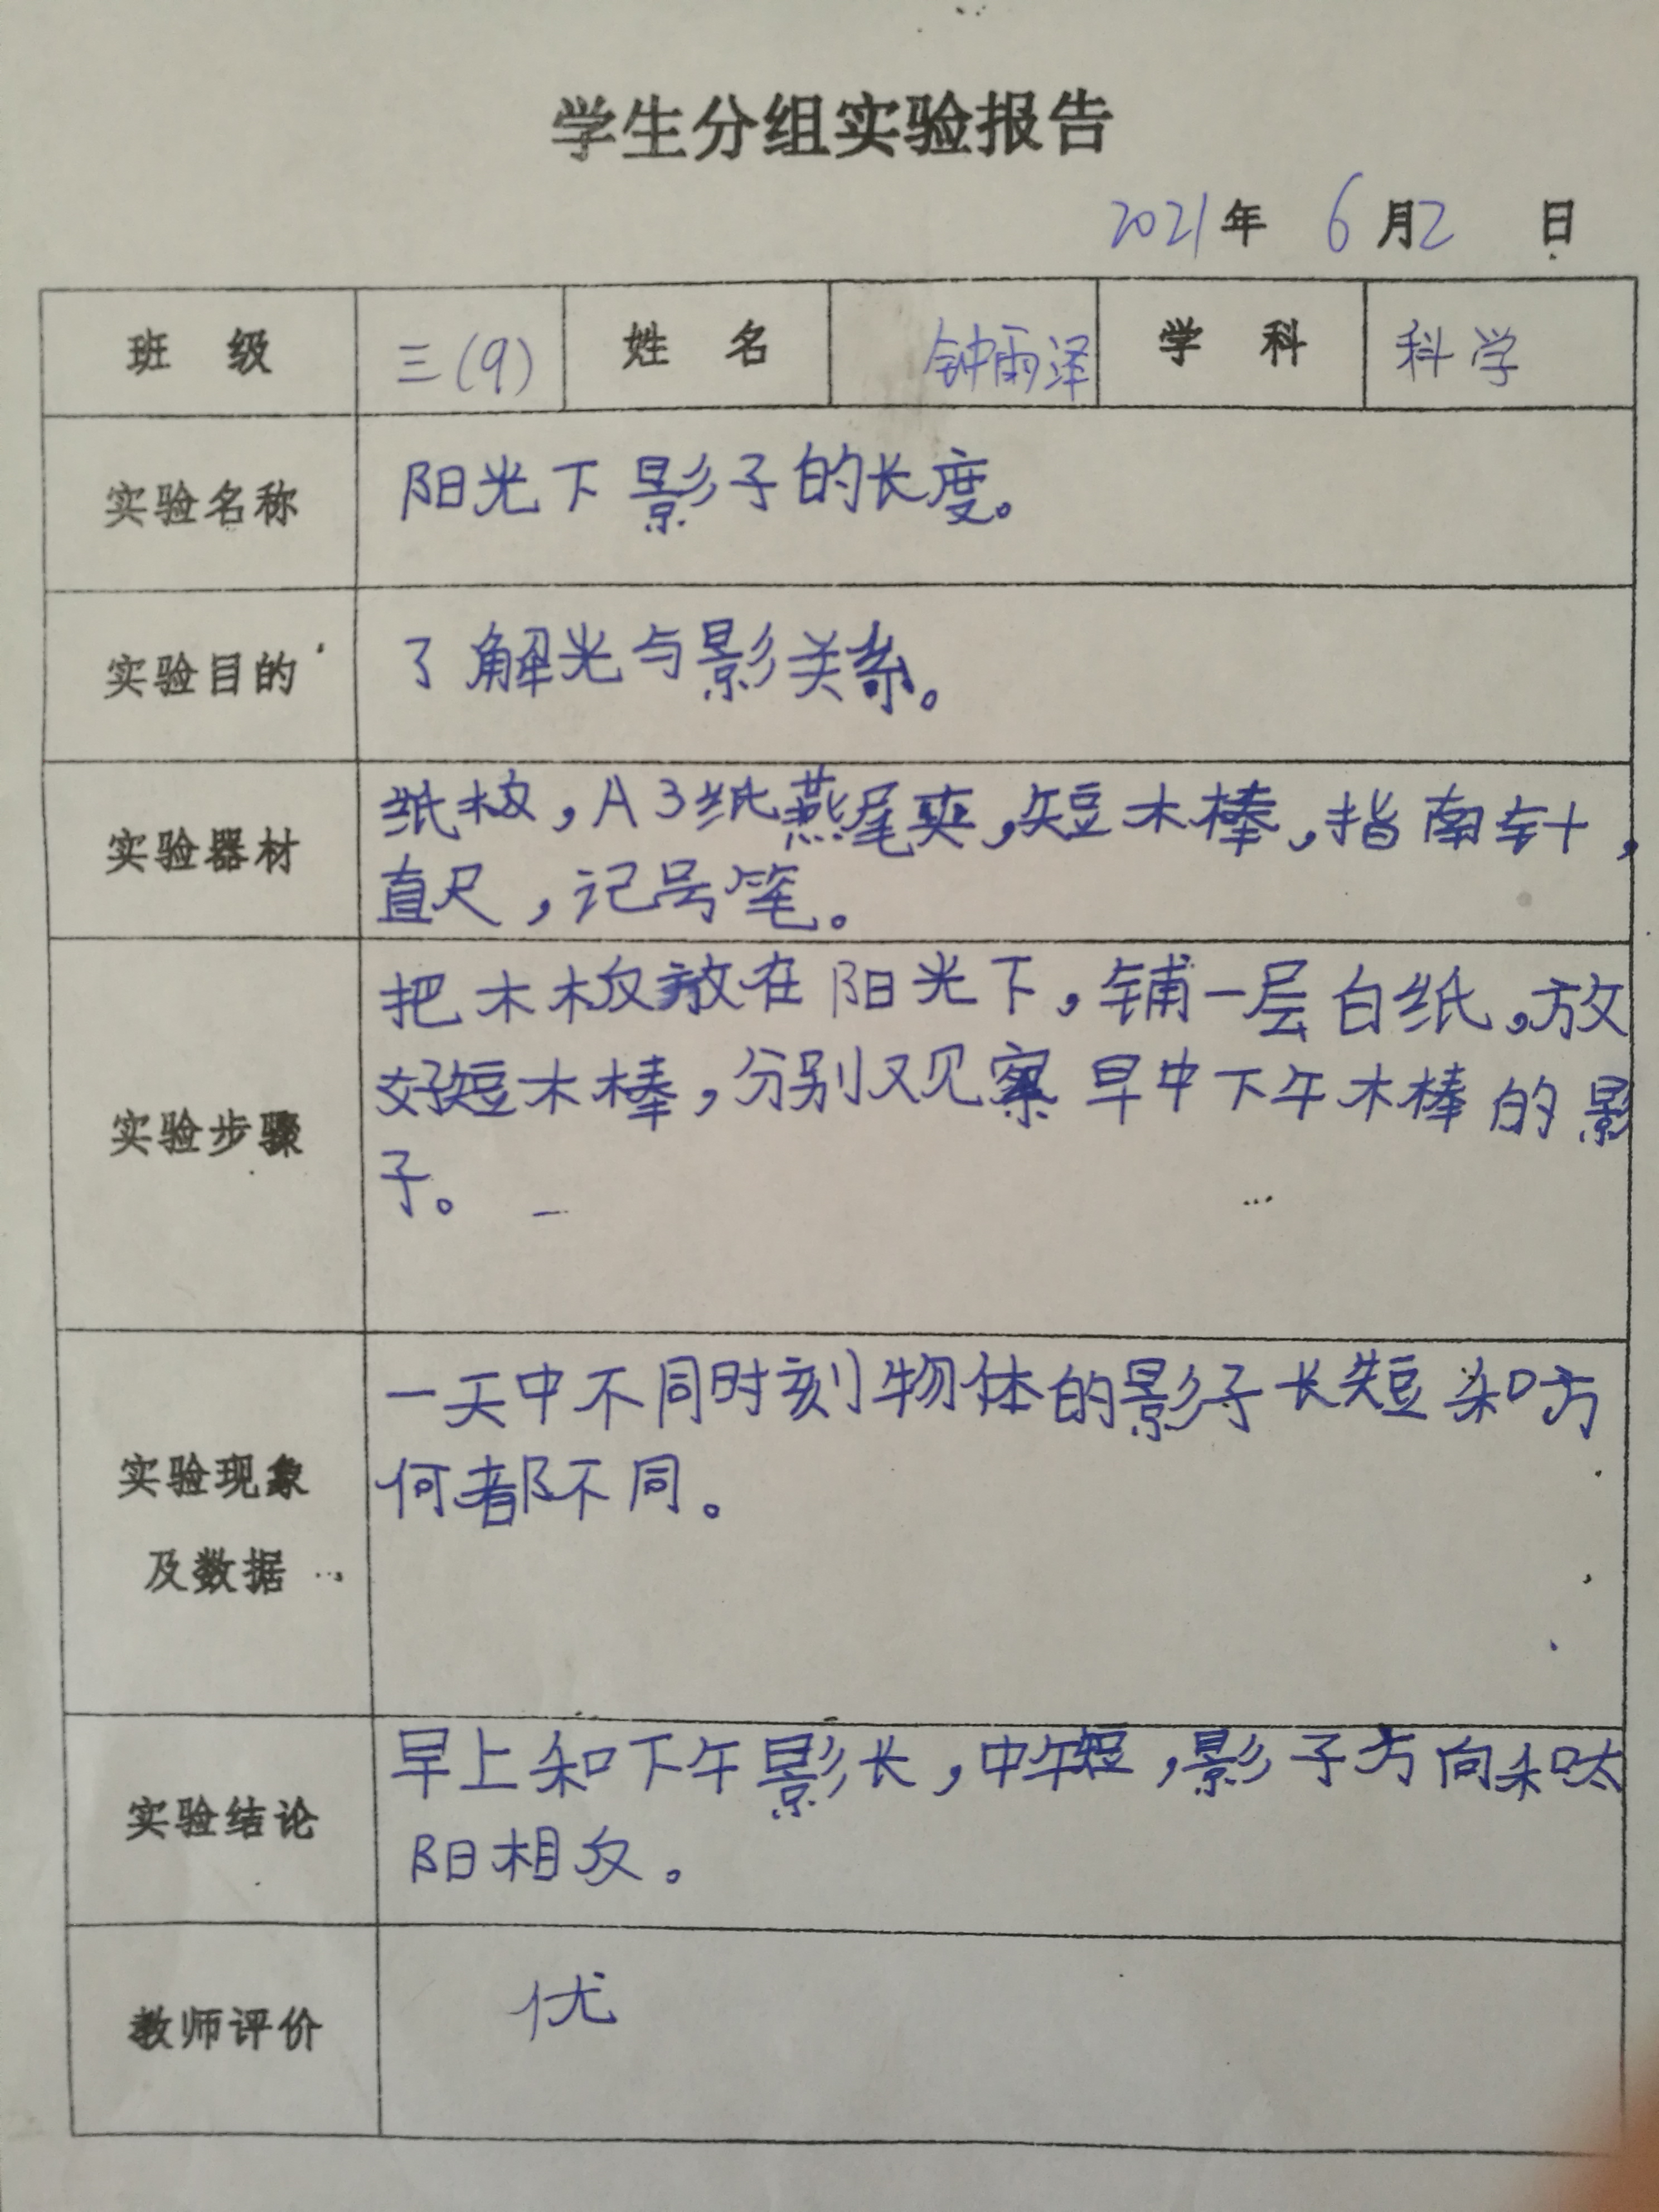 学生分组实验报告
2021年 6月2 日
班 级 三(9) 姓 名 钟雨泽 学 科 科学
实验名称 阳光下影子的长度。
实验目的 了解光与影关系。
实验器材
纸板,A3纸燕尾夹,短木棒,指南针,
直尺,记号笔。
实验步骤
把木板放在阳光下,铺一层白纸,放
好短木棒,分别观察早中下午木棒的影
子。
实验现象
及数据
一天中不同时刻物体的影子长短和方
何都不同。
实验结论
早上和下午影长,中午短,影子方向和太
阳相反。
教师评价 优